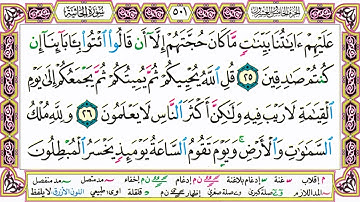 سُورَةُ الجَاثِيَة ٥٠١ الجزء الخامس والعشرون
عَلَيْهِمْ ءَايَٰتُنَا بَيِّنَٰتٍ مَّا كَانَ حُجَّتَهُمْ إِلَّآ أَن قَالُوا۟ ٱئْتُوا۟ بِـَٔابَآئِنَآ إِن
كُنتُمْ صَٰدِقِينَ ٢٥ قُلِ ٱللَّهُ يُحْيِيكُمْ ثُمَّ يُمِيتُكُمْ ثُمَّ يَجْمَعُكُمْ إِلَىٰ يَوْمِ
ٱلْقِيَٰمَةِ لَا رَيْبَ فِيهِ وَلَٰكِنَّ أَكْثَرَ ٱلنَّاسِ لَا يَعْلَمُونَ ٢٦ وَلِلَّهِ مُلْكُ
ٱلسَّمَٰوَٰتِ وَٱلْأَرْضِ وَيَوْمَ تَقُومُ ٱلسَّاعَةُ يَوْمَئِذٍ يَخْسَرُ ٱلْمُبْطِلُونَ